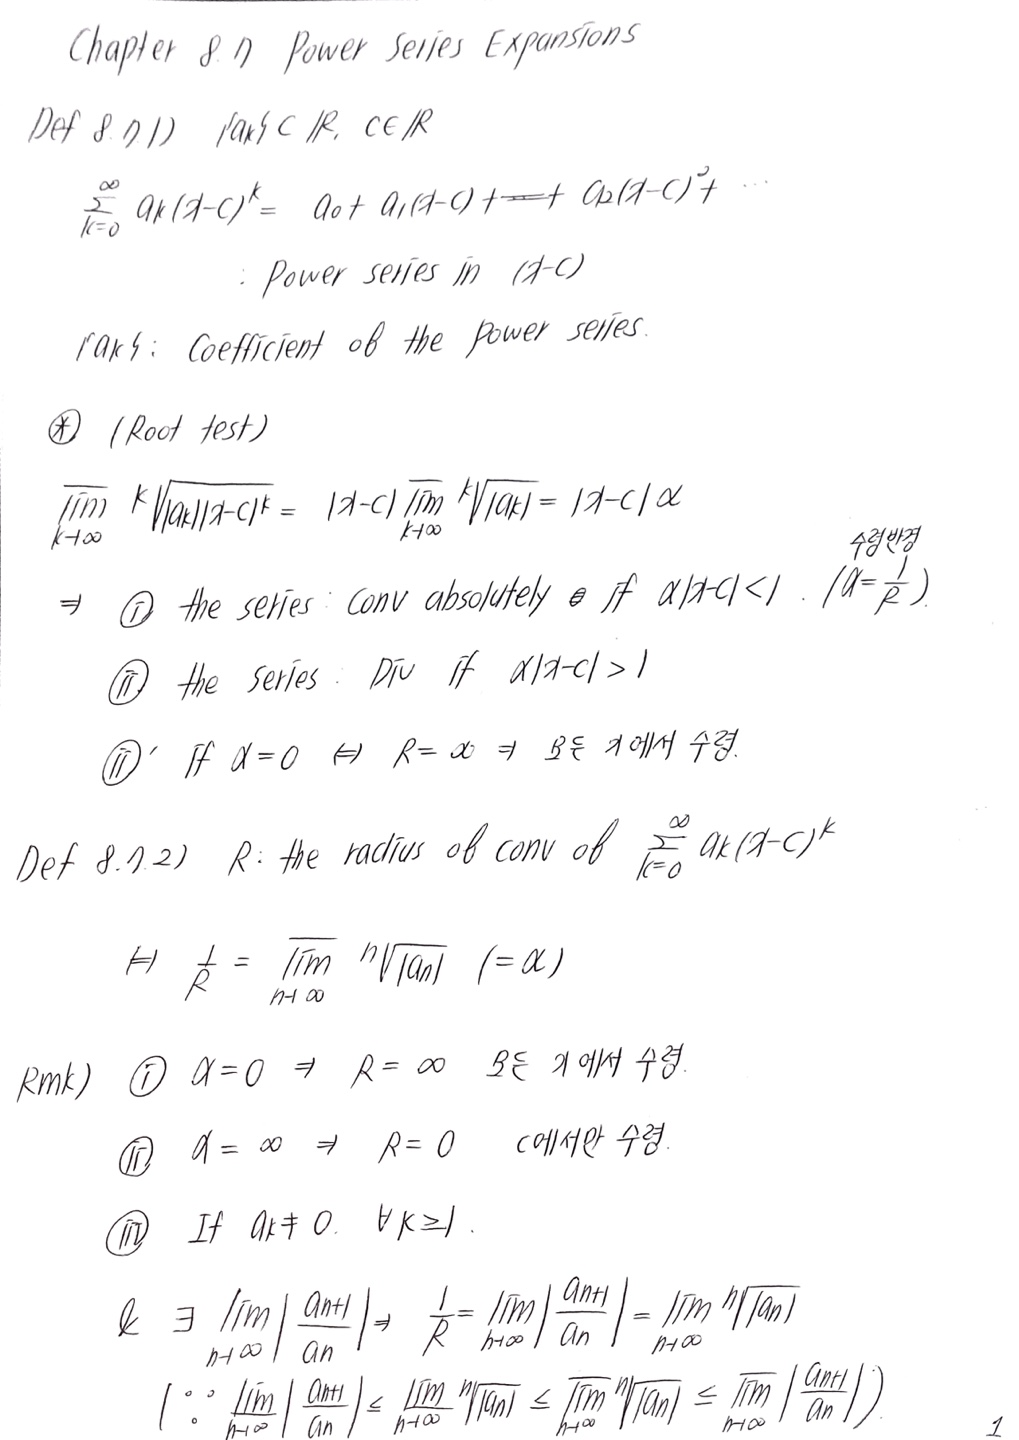 Chapter 8.7 Power Series Expansions
Def 8.7.1) {ak} ⊂ ℝ, c∈ℝ
∞Σk=0 ak(x-c)^k = a0 + a1(x-c) + a2(x-c)^2 + ⋯
: Power series in (x-c)
{ak}: Coefficient of the power series.
⊛ (Root test)
lim̅ k→∞ ᵏ√|ak||x-c|^k = |x-c| lim̅ k→∞ ᵏ√|ak| = |x-c|α
수렴반경
⇒ ⓘ the series : conv absolutely if α|x-c|<1. (α=1/R).
ⓘⓘ the series : Div if α|x-c|>1
ⓘⓘ' If α=0 ⇔ R=∞ ⇒ 모든 x에서 수렴.
Def 8.7.2) R: the radius of conv of ∞Σk=0 ak(x-c)^k
⇔ 1/R = lim̅ n→∞ ⁿ√|an| (=α)
Rmk) ⓘ α=0 ⇒ R=∞ 모든 x에서 수렴.
ⓘⓘ α=∞ ⇒ R=0 c에서만 수렴.
ⓘⓘⓘ If ak≠0. ∀k≥1.
& ∃ lim n→∞ |an+1/an| ⇒ 1/R = lim n→∞ |an+1/an| = lim n→∞ ⁿ√|an|
(∵ lim̲ n→∞ |an+1/an| ≤ lim̲ n→∞ ⁿ√|an| ≤ lim̅ n→∞ ⁿ√|an| ≤ lim̅ n→∞ |an+1/an|)
1